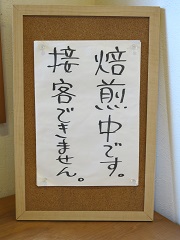 焙煎中です。
接客できません。